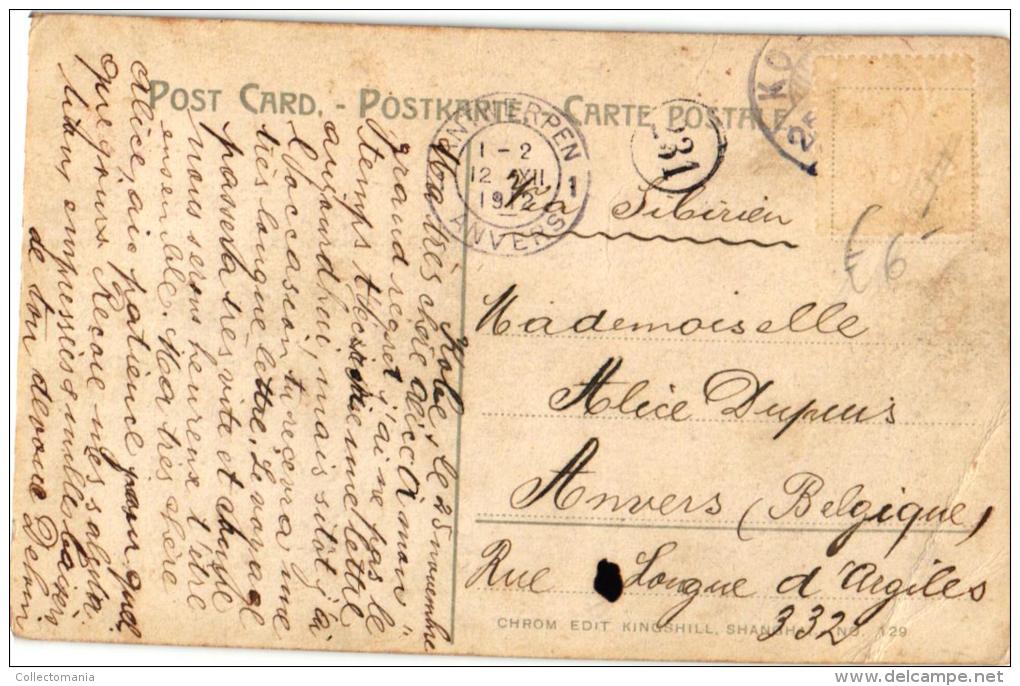 POST CARD. - POSTKARTE - CARTE POSTALE
ANTWERPEN
1-2
12 XII
1912
1
ANVERS
331
KO
25
Via Sibirien
€6-
Mademoiselle
Alice Dupuis
Anvers (Belgique)
Rue Longue d'Argiles
332
CHROM EDIT KINGSHILL, SHANGHAI NO. 129
Kobe, le 25 novembre
Ma très chère Alice. A mon
grand regret j'ai ne pas le
temps t'écrire une lettre
aujourd'hui, mais sitôt j'ai
l'occasion tu reçevra une
très longue lettre. Le voyage
passera très vite et
nous serons heureux t'être
ensemble. Ma très chère
Alice, aie patience pour quel
ques jours. Reçois mes
bien empressées
de ton dévoué
Collectomania
www.delcampe.net